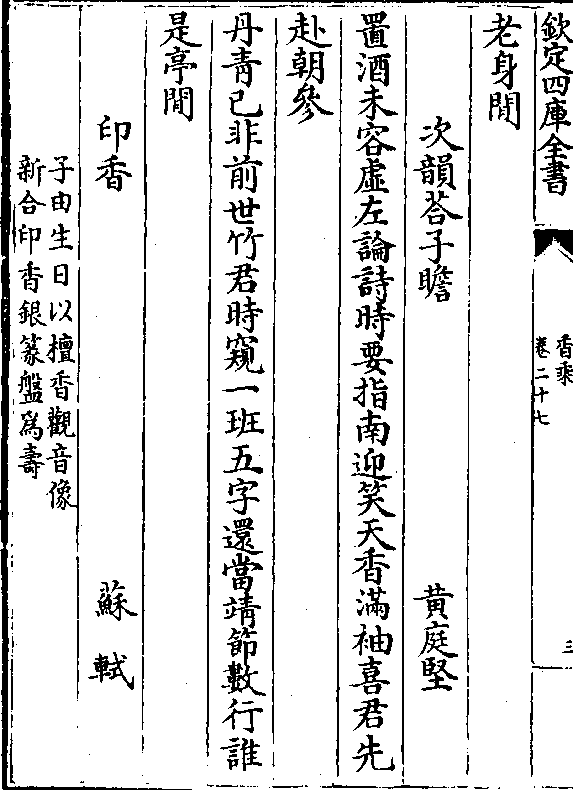 欽定四庫全書
香乘
卷二十七
三
老身閒
次韻荅子瞻 黄庭堅
置酒未容虛左論詩時要指南迎笑天香滿袖喜君先
赴朝參
丹青已非前世竹君時窺一班五字還當靖節數行誰
是亭閒
印香 蘇軾
子由生日以檀香觀音像
新合印香銀篆盤爲壽